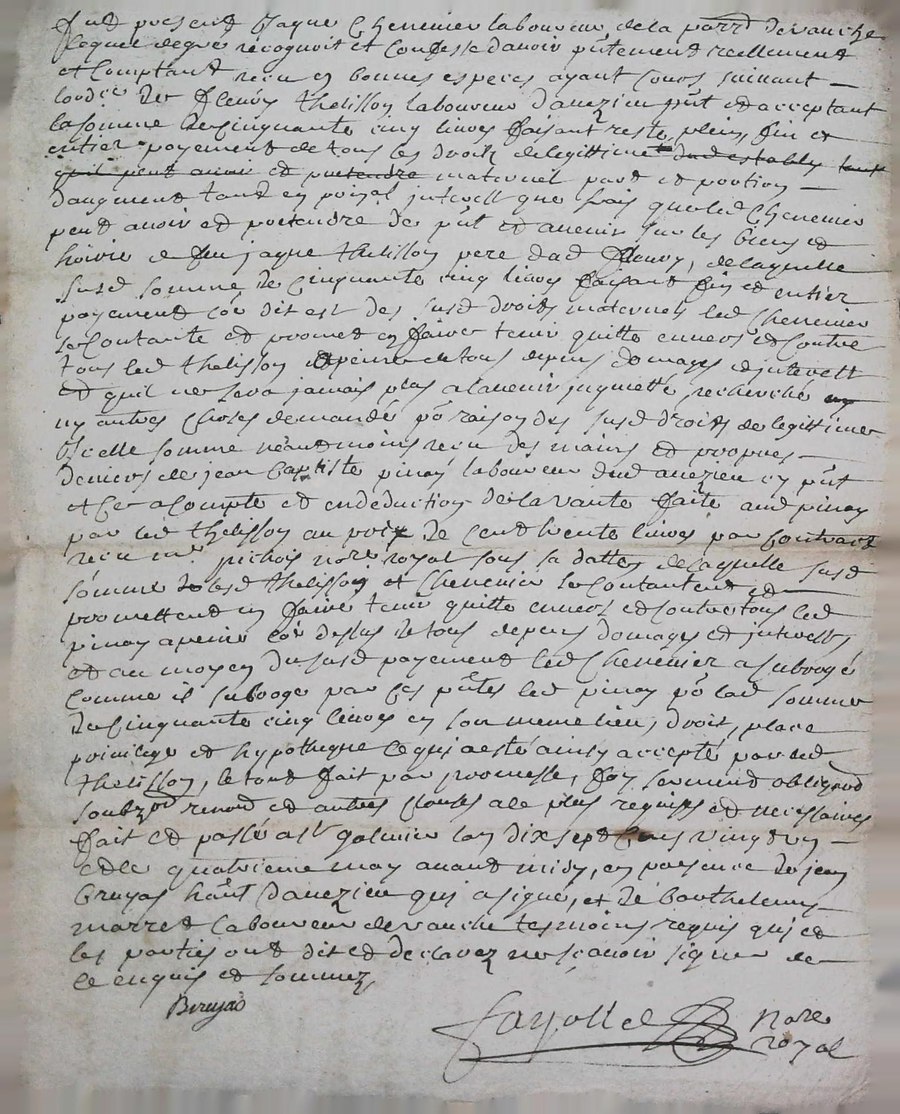 fut present Jaque Chenevier laboureur de la parr^e devauche
lequel de gré recognoit et confesse davoir pntement reellement
et comptant receu en bonnes especes ayant cours suivant
de fleury thelisson laboureur davezieu pnt et acceptant
la somme de cinquante cinq livres faisant reste, plein, fin et
entier payement de tous les droits de legittime
quil peut avoir et pretendre maternel part et portion
daugment tant en principal interest que frais que led Chenevier
peut avoir et pretendre de pnt et avenir sur les biens et
hoirie de feu jaque thelisson pere dud fleury, de laquelle
susd somme de cinquante cinq livres faisant fin et entier
payement coe dit est des susd droits maternels led Chenevier
se contante et promet en faire tenir quitte envers et contre
tous led thelisson a peine de tous depens domages et interest
et quil ne sera jamais plus a lavenir inquietté recherché
ny autres choses demandé pr raison des susd droits de legittime
icelle somme neantmoins receu des mains et propres
deniers de jean baptiste pinay laboureur dud avezieu cy pnt
et ce a compte et en deduction de la vante faite aud pinay
par led thelisson au prix de cent trente livres par contract
receu me pichois nore royal sous sa datte, de laquelle susd
somme lesd thelisson et Chenevier se contantent et
promettent en faire tenir quitte envers et contre tous led
pinay a peine coe dessus de tous depens domages et interests
et au moyen du susd payement led Chenevier a subrogé
comme il subroge par ces pntes led pinay pr lad somme
de cinquante cinq livres en son meme lieu, droit, place
privilege et hypotheque ce qui a esté ainsy accepté par led
thelisson, le tout fait par promesse, foy serment obligeant
soubzon renond et autres clauses a ce plus requises et necessaires
fait et passé a st galmier lan dix sept cens vingt un
et le quatrieme may avant midy, en presence de jean
bruyas hant davezieu qui a signé, et de barthelemy
marret laboureur de vauche tesmoins requis qui et
les parties ont dit et declarez ne sçavoir signer de
ce enquis et sommez
Bruyas
fayolle Nore
royal